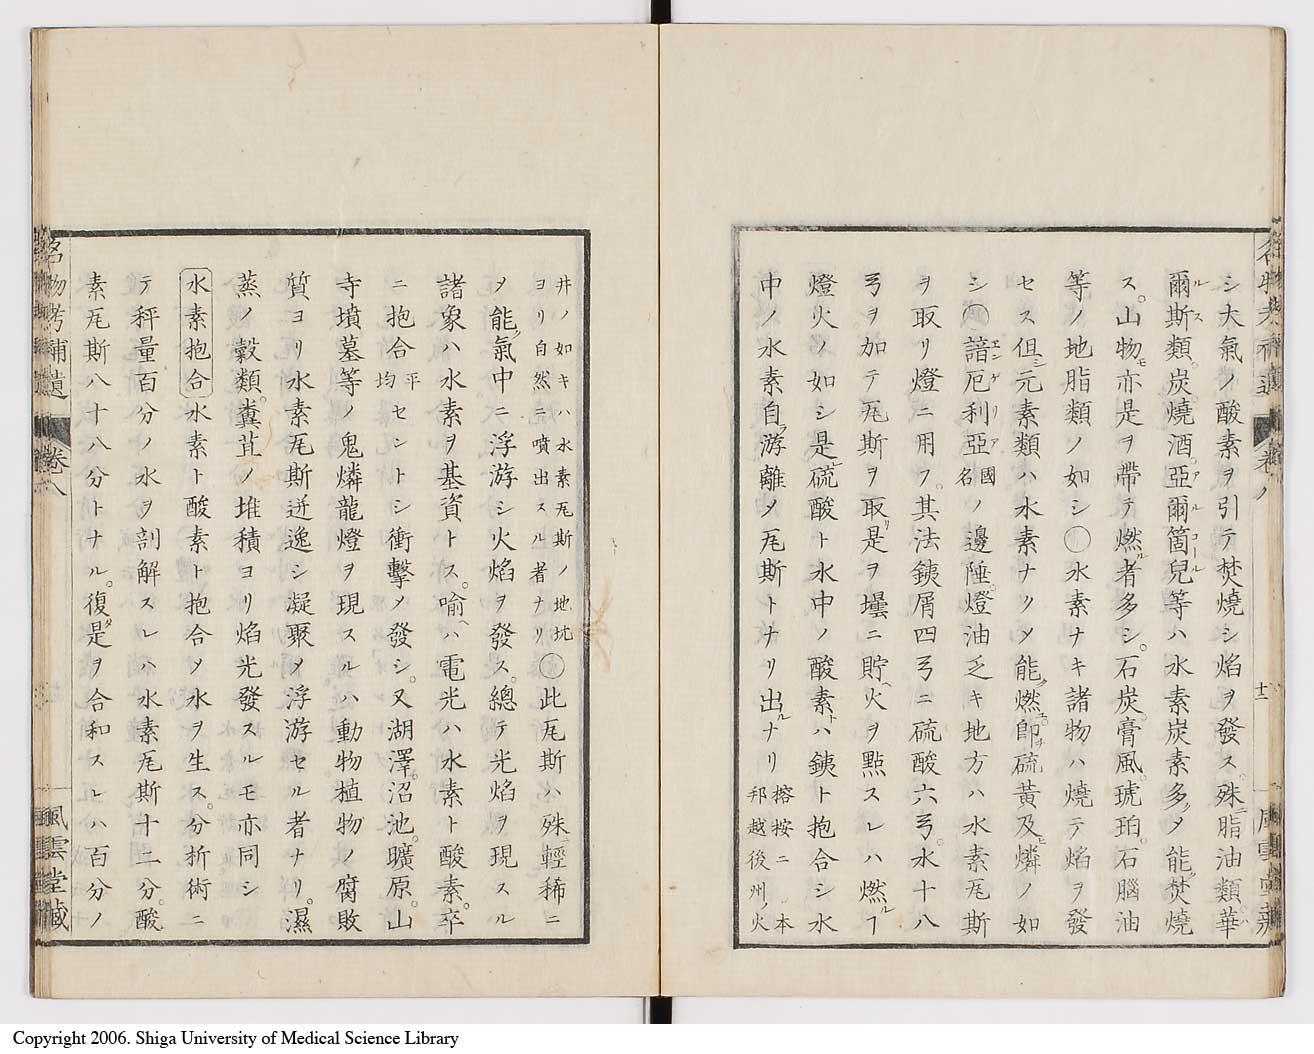 シ大氣ノ酸素ヲ引テ焚燒シ焰ヲ發ス。殊ニ脂油類華
爾斯類。炭燒酒亞爾箇兒等ハ水素炭素多クメ能ク焚燒
ルス アルコール
ス。山物モ亦是ヲ帶テ燃ル者多シ。石炭。膏風。琥珀。石腦油
等ノ地脂類ノ如シ〇水素ナキ諸物ハ燒テ焰ヲ發
セス但シ元素類ハ水素ナクメ能ク燃ユ。即チ硫黃及ヒ燐ノ如
シ〇諳厄利亞國名ノ邊陲。燈油乏キ地方ハ水素瓦斯
エンゲリア
ヲ取リ燈ニ用フ。其法銕屑四弓ニ硫酸六弓。水十八
弓ヲ加テ瓦斯ヲ取リ是ヲ壜ニ貯ヘ火ヲ點スレハ燃ルヿ
燈火ノ如シ是レ硫酸ト水中ノ酸素トハ銕ト抱合シ水
中ノ水素自ラ游離メ瓦斯トナリ出ルナリ
榕按ニ本
邦越後州ノ火
井ノ如キハ水素瓦斯ノ地坑
ヨリ自然ニ噴出スル者ナリ
〇此瓦斯ハ殊ニ輕稀ニ
メ能ク氣中ニ浮游シ火焰ヲ發ス。總テ光焰ヲ現スル
諸象ハ水素ヲ基資トス。喻ヘハ電光ハ水素ト酸素。卒
ニ抱合平均セントシ衝擊メ發シ。又湖澤。沼池。曠原。山
寺墳墓等ノ鬼燐龍燈ヲ現スルハ動物植物ノ腐敗
質ヨリ水素瓦斯迸逸シ凝聚メ浮游セル者ナリ。濕
蒸ノ穀類。糞苴ノ堆積ヨリ焰光發スルモ亦同シ
水素抱合 水素ト酸素ト抱合メ水ヲ生ス。分析術ニ
テ秤量百分ノ水ヲ剖解スレハ水素瓦斯十二分。酸
素瓦斯八十八分トナル。復タ是ヲ合和スレハ百分ノ
名物考補遺 卷八 風雲堂藏